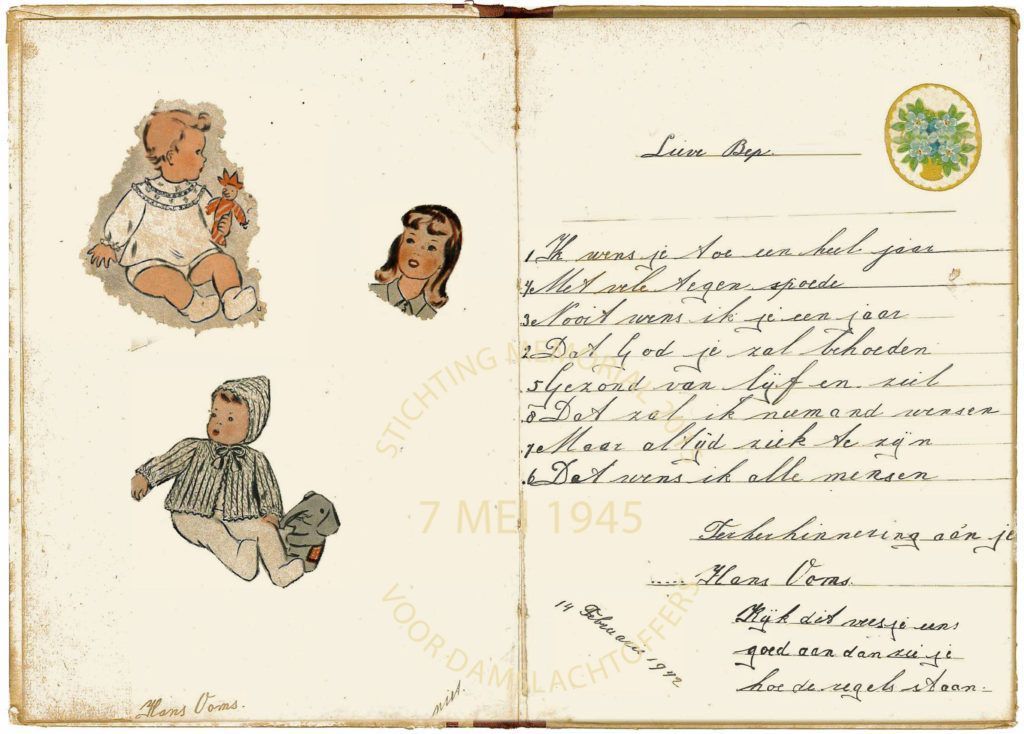 Lieve Bep.
1 Ik wens je toe een heel jaar
4 Met vele tegen spoede
3 Nooit wens ik je een jaar
2 Dat God je zal behoeden
5 Gezond van lijf en ziel
8 Dat zal ik niemand wensen
7 Maar altijd ziek te zijn
6 Dat wens ik alle mensen
Terherhinnering aan je
..... Hans Ooms.
14 Februarie 1942
Kijk dit versje eens
goed aan dan zie je
hoe de regels staan:-
Hans Ooms.
niet.
STICHTING MEMORIAL
7 MEI 1945
VOOR DAMSLACHTOFFERS